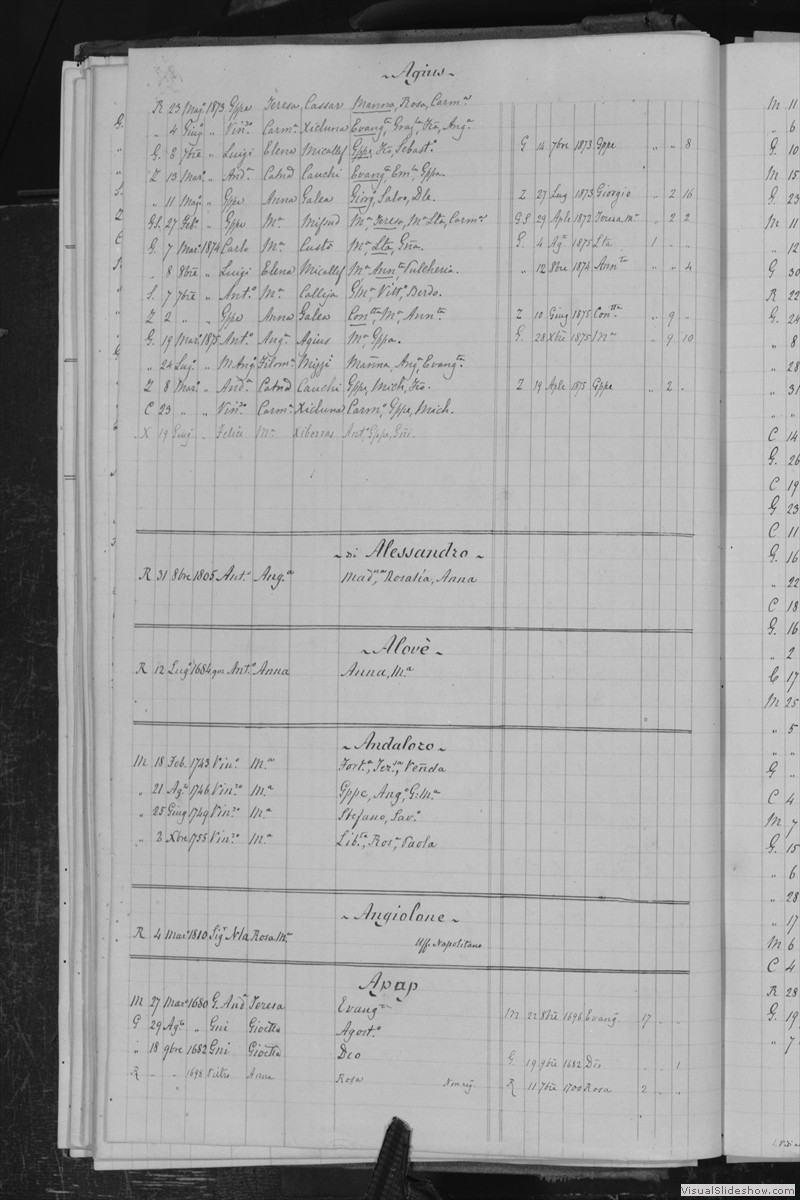 Agius
R 23 Magº 1873 Gppe Teresa Cassar Manna, Rosa, Carmª
G. „ 4 Giugº „ Vinzº Carmª Xicluna Evangta, Grazta, Fco, Angª
„ G. 8 7bre „ Luigi Elena Micallef Gppe, Fco, Sebastº G 14 7bre 1873 Gppe „ „ 8
„ Z 13 Marº „ Andª Catnd Cauchi Evangta Emla Gppa.
S. „ 11 Magº „ Gppe Anna Galea Giorg, Salvo, Dle. Z 27 Lug 1873 Giorgio „ 2 16
Z GS. 27 Febº „ Gppe Mª Mifsud Mª, Teresa, Mª Lta, Carmª G.S 29 Aple 1872 Teresa Mª „ 2 2
C G. 7 Marº 1874 Carlo Mª Custò Mª, Lta, Gña. G. 4 Agº 1875 Lta 1 „ „
R „ 8 8bre „ Luigi Elena Micallef Mª Annta Pulcheria. „ 12 8bre 1874 Annta „ „ 4
„ S. 7 7bre „ Antº Mª Calleja GMª, Vittª, Berdo.
„ Z 2 „ „ Gppe Anna Galea Contta, Mª, Annta. Z 10 Giug 1875 Contta „ 9 „
„ G. 19 Marº 1875 Antº Angª Agius Mª, Gppa. G. 28 Xbre 1875 Mª „ 9 10
G „ 24 Lugº „ M.Angº Filomª Mizzi Manna, Angª, Evangta.
„ Z 8 Marº „ Andª Catnd Cauchi Gppe, Mich, Fco. Z 19 Aple 1875 Gppe „ 2 „
„ C 23 „ „ Vinzº Carmª Xicluna Carmª, Gppe, Mich.
X 19 Giugº „ Felice Mª Xiberras Antº Gppe, Gni.
Di Alessandro
R 31 8bre 1805 Antº Angª Madna, Rosalia, Anna
Alovè
R 12 Lugº 1684 qm Antº Anna Anna, Mª
Andaloro
M 18 Feb. 1743 Vinº Mª Fortª, Tersa, Venda
„ 21 Agº 1746 Vinzº Mª Gppe, Angº, G:Mª
„ 25 Giug 1749 Vinzº Mª Stefano, Savº
„ 2 Xbre 1755 Vinzº Mª Libta, Rosª, Paola
Angiolone
R 4 Marº 1810 Sigr Nla Rosa Mª Uff. Napolitano
Apap
M 27 Marº 1680 G. And Teresa Evangta M 22 8bre 1696 Evang 17 „ „
G 29 Agº „ Gni Gioetta Agostº
„ 18 9bre 1682 Gni Gioetta Dco G 19 9bre 1682 Dco „ „ 1
R „ „ 1698 Pietro Anna Rosa R 11 7bre 1700 Rosa 2 „ „
M 11
„ 6
G 10
M 15
G 23
M 11
„ 12
G 30
R 22
G. 24
„ 8
„ 28
„ 31
„ „
C 14
G. 26
C 19
G 23
C 11
G. 16
„ 22
C 18
G. 16
„ 2
G 17
M 25
„ 5
„ „
G „
C 4
M 7
G. 15
„ 6
„ 28
„ 17
M 6
C 4
R 28
G. 19
„ 7
VisualSlideshow.com